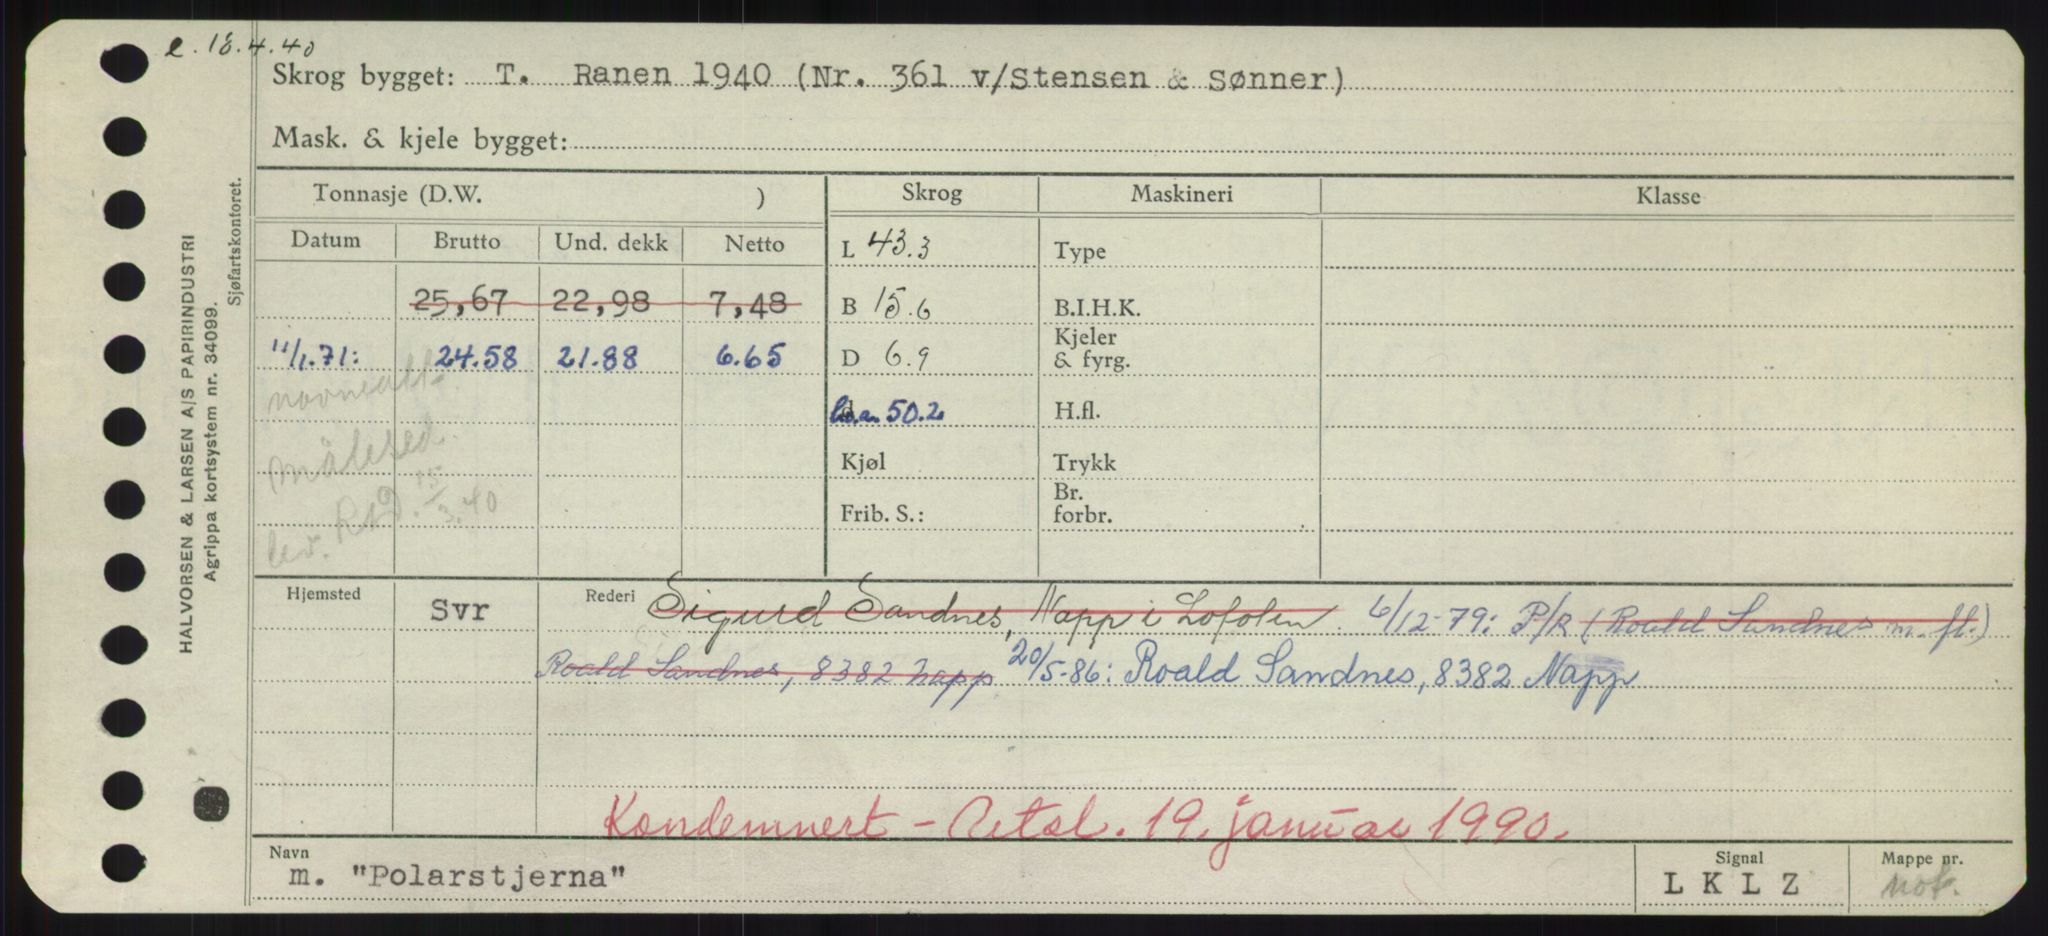 e. 18.4.40
Skrog bygget: T. Ranen 1940 (Nr. 361 v/Stensen & Sønner)
Mask. & kjele bygget:
Tonnasje (D.W. ) Skrog Maskineri Klasse
Datum Brutto Und. dekk Netto L 43.3 Type
25,67 22,98 7,48 B 15.6 B.I.H.K.
11/1.71: 24.58 21.88 6.65 D 6.9 Kjeler & fyrg.
l.o.a. 50.2 H.fl.
målesed. Kjøl Trykk
lev. Rod. 15/3.40 Frib. S.: Br. forbr.
Hjemsted Svr Rederi Sigurd Sandnes, Napp i Lofoten. 6/12-79: P/R (Roald Sandnes m. fl.)
Roald Sandnes, 8382 Napp 20/5-86: Roald Sandnes, 8382 Napp
Kondemnert - 19. januar 1990.
Navn m. "Polarstjerna" Signal LKLZ Mappe nr. not.
HALVORSEN & LARSEN A/S PAPIRINDUSTRI
Agrippa kortsystem nr. 34099.
Sjøfartskontoret.